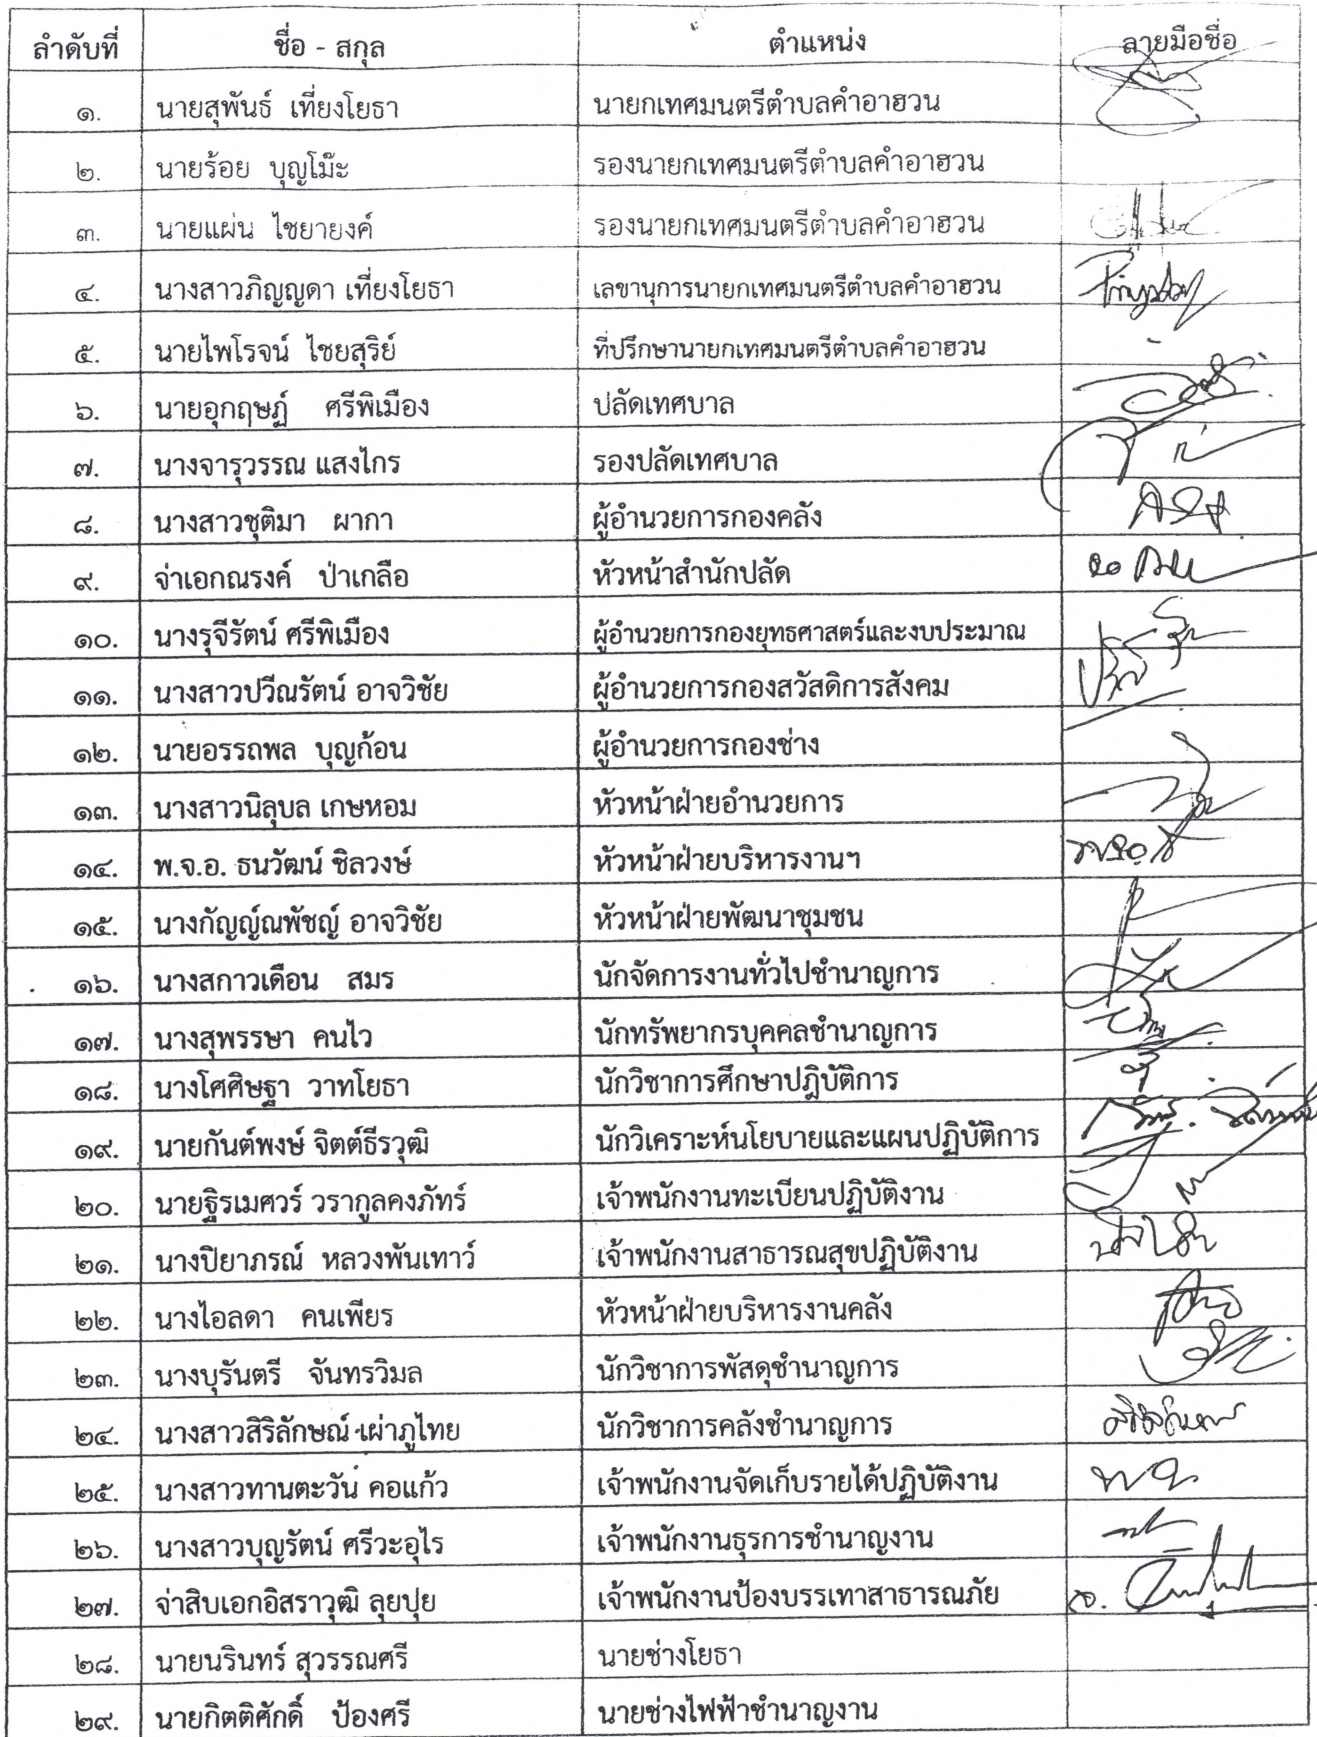 ลำดับที่ ชื่อ - สกุล ตำแหน่ง ลายมือชื่อ
๑. นายสุพันธ์ เที่ยงโยธา นายกเทศมนตรีตำบลคำอาฮวน
๒. นายร้อย บุญโม๊ะ รองนายกเทศมนตรีตำบลคำอาฮวน
๓. นายแผ่น ไชยายงค์ รองนายกเทศมนตรีตำบลคำอาฮวน
๔. นางสาวภิญญดา เที่ยงโยธา เลขานุการนายกเทศมนตรีตำบลคำอาฮวน
๕. นายไพโรจน์ ไชยสุริย์ ที่ปรึกษานายกเทศมนตรีตำบลคำอาฮวน
๖. นายอุกฤษฏ์ ศรีพิเมือง ปลัดเทศบาล
๗. นางจารุวรรณ แสงไกร รองปลัดเทศบาล
๘. นางสาวชุติมา ผากา ผู้อำนวยการกองคลัง
๙. จ่าเอกณรงค์ ป่าเกลือ หัวหน้าสำนักปลัด
๑๐. นางรุจีรัตน์ ศรีพิเมือง ผู้อำนวยการกองยุทธศาสตร์และงบประมาณ
๑๑. นางสาวปวีณรัตน์ อาจวิชัย ผู้อำนวยการกองสวัสดิการสังคม
๑๒. นายอรรถพล บุญก้อน ผู้อำนวยการกองช่าง
๑๓. นางสาวนิลุบล เกษหอม หัวหน้าฝ่ายอำนวยการ
๑๔. พ.จ.อ. ธนวัฒน์ ชิลวงษ์ หัวหน้าฝ่ายบริหารงานฯ
๑๕. นางกัญญ์ณพัชญ์ อาจวิชัย หัวหน้าฝ่ายพัฒนาชุมชน
๑๖. นางสกาวเดือน สมร นักจัดการงานทั่วไปชำนาญการ
๑๗. นางสุพรรษา คนไว นักทรัพยากรบุคคลชำนาญการ
๑๘. นางโศศิษฐา วาทโยธา นักวิชาการศึกษาปฏิบัติการ
๑๙. นายกันต์พงษ์ จิตต์ธีรวุฒิ นักวิเคราะห์นโยบายและแผนปฏิบัติการ
๒๐. นายฐิรเมศวร์ วรากูลคงภัทร์ เจ้าพนักงานทะเบียนปฏิบัติงาน
๒๑. นางปิยาภรณ์ หลวงพันเทาว์ เจ้าพนักงานสาธารณสุขปฏิบัติงาน
๒๒. นางไอลดา คนเพียร หัวหน้าฝ่ายบริหารงานคลัง
๒๓. นางบุรันตรี จันทรวิมล นักวิชาการพัสดุชำนาญการ
๒๔. นางสาวสิริลักษณ์ เผ่าภูไทย นักวิชาการคลังชำนาญการ
๒๕. นางสาวทานตะวัน คอแก้ว เจ้าพนักงานจัดเก็บรายได้ปฏิบัติงาน
๒๖. นางสาวบุญรัตน์ ศรีวะอุไร เจ้าพนักงานธุรการชำนาญงาน
๒๗. จ่าสิบเอกอิสราวุฒิ ลุยปุย เจ้าพนักงานป้องบรรเทาสาธารณภัย
๒๘. นายนรินทร์ สุวรรณศรี นายช่างโยธา
๒๙. นายกิตติศักดิ์ ป้องศรี นายช่างไฟฟ้าชำนาญงาน